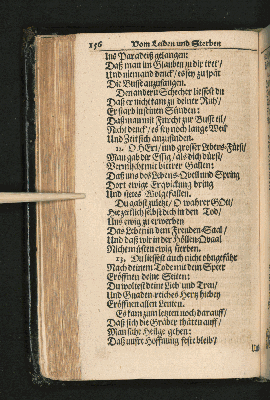 156 Vom Leiden und Sterben
Ins Paradeiß gelangen:
Daß man im Glauben zu dir tret/
Und niemand denck/ es sey zu spat
Die Buß anzufangen.
Den andern Schecher liessest du
Daß er nicht kam zu deiner Ruh/
Er starb in seinen Sünden:
Daß man mit Furcht zur Buß eil/
Nicht denck/ es sey noch lange Weil
Und Zeit sich
12. O HErr/ und grosser Lebens-Fürst/
Man gab dir Essig/ als dich dürst/
Vermischt mit bittrer Gallen:
Daß uns des Lebens-Quell und Spring
Dort ewige Erquickung bring
Und stetes Wolgefallen.
Du gabst zuletzt/ O wahrer GOtt/
selbst dich in den Tod/
Uns ewig zu erwerben
Das Leben in dem Freuden-Saal/
Und daß wir in der Höllen-Quaal
Nicht müsten ewig sterben.
13. Du liessest auch nicht ohngefähr
Nach deinem Tode mit dem Speer
Eröffnen deine Seiten:
Du woltest deine Lieb und Treu/
Und Gnaden-reiches Hertz hiebey
Eröffnen allen Leuten.
Es kam zum letzten noch darauff/
Daß sich die Gräber thäten auff/
Man sahe Heilge gehen:
Daß unsre Hoffnung fest bleib/